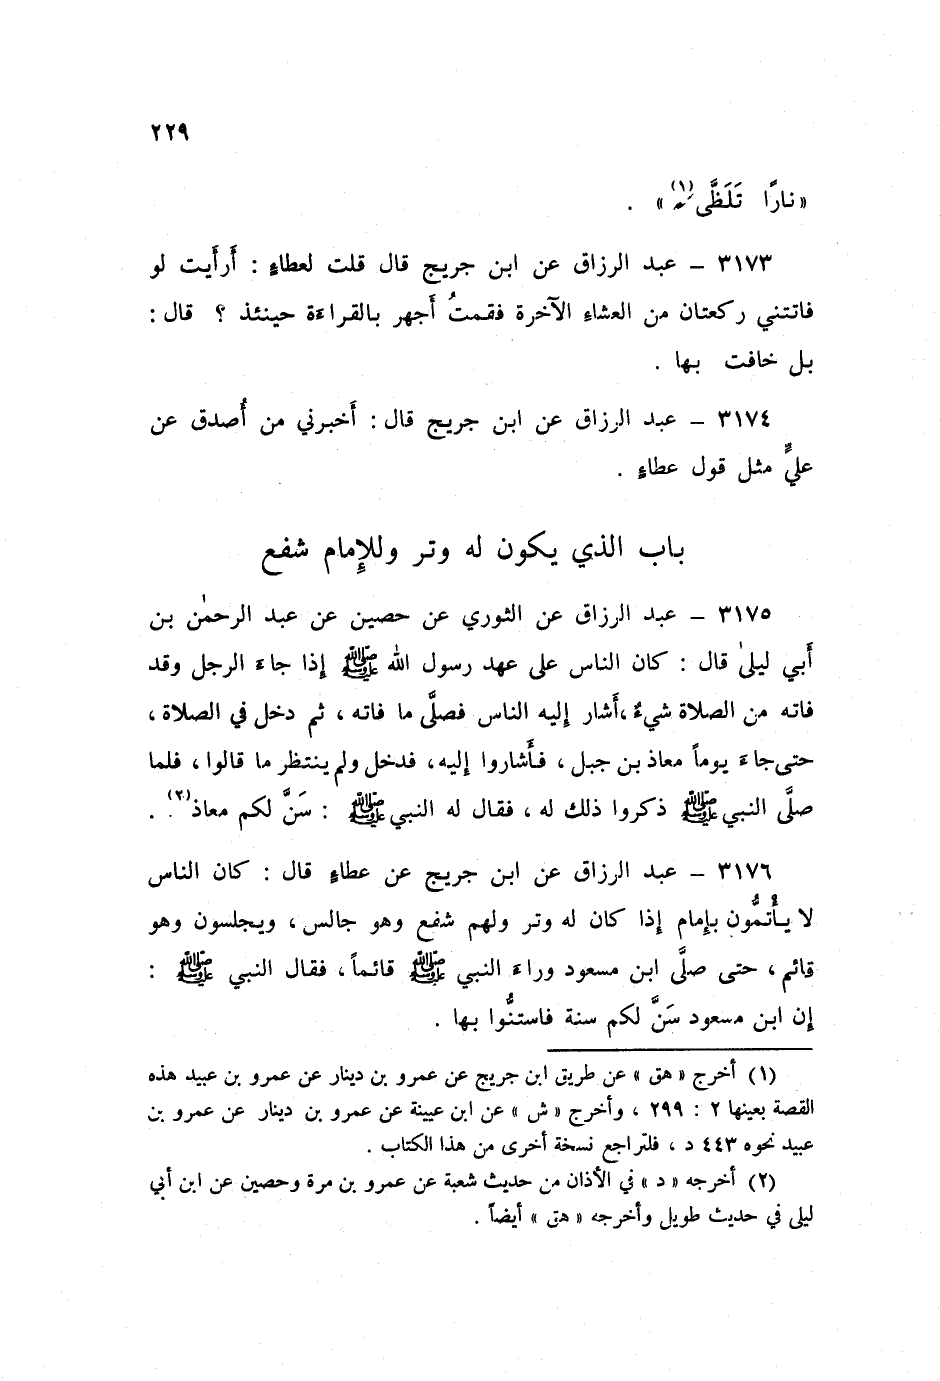 ٢٢٩
«نارًا تَلَظَّى(١)» .
٣١٧٣ – عبد الرزاق عن ابن جريج قال قلت لعطاءٍ : أَرأَيت لو
فاتتني ركعتان من العشاءِ الآخرة فقمتُ أَجهر بالقراءَة حينئذ ؟ قال :
بل خافت بها .
٣١٧٤ – عبد الرزاق عن ابن جريج قال : أَخبرني من أُصدق عن
عليٍّ مثل قول عطاءٍ .
باب الذي يكون له وتر وللإِمام شفع
٣١٧٥ – عبد الرزاق عن الثوري عن حصين عن عبد الرحمٰن بن
أَبي ليلىٰ قال : كان الناس على عهد رسول الله ﷺ إِذا جاءَ الرجل وقد
فاته من الصلاة شيءٌ ،أَشار إِليه الناس فصلَّى ما فاته ، ثم دخل في الصلاة ،
حتى جاءَ يوماً معاذ بن جبل ، فأَشاروا إِليه، فدخل ولم ينتظر ما قالوا ، فلما
صلَّى النبي ﷺ ذكروا ذلك له ، فقال له النبي ﷺ : سَنَّ لكم معاذ(٢) .
٣١٧٦ – عبد الرزاق عن ابن جريج عن عطاءٍ قال : كان الناس
لا يأْتمُّون بإِمام إِذا كان له وتر ولهم شفع وهو جالس ، ويجلسون وهو
قائم ، حتى صلَّى ابن مسعود وراءَ النبي ﷺ قائماً ، فقال النبي ﷺ :
إِن ابن مسعود سَنَّ لكم سنة فاستنُّوا بها .
(١) أخرج « هق » عن طريق ابن جريج عن عمرو بن دينار عن عمرو بن عبيد هذه
القصة بعينها ٢ : ٢٩٩ ، وأخرج « ش » عن ابن عيينة عن عمرو بن دينار عن عمرو بن
عبيد نحوه ٤٤٣ د ، فلتراجع نسخة أخرى من هذا الكتاب .
(٢) أخرجه « د » في الأذان من حديث شعبة عن عمرو بن مرة وحصين عن ابن أبي
ليلى في حديث طويل وأخرجه « هق » أيضاً .